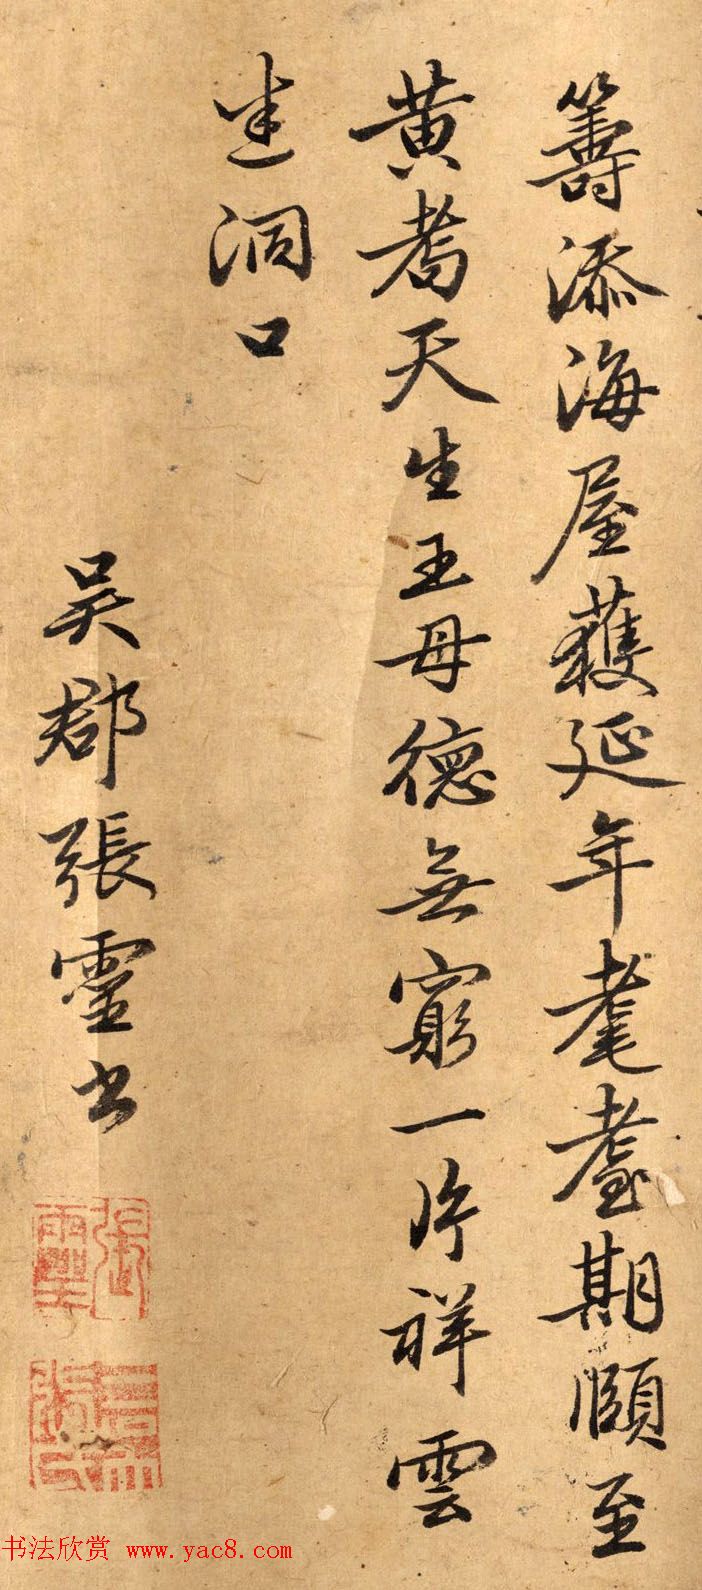 籌添海屋獲延年耄耋期頤至
黄耇天生王母德無窮一片祥雲
迷洞口
吴郡張靈書
張靈
书法欣赏 www.yac8.com